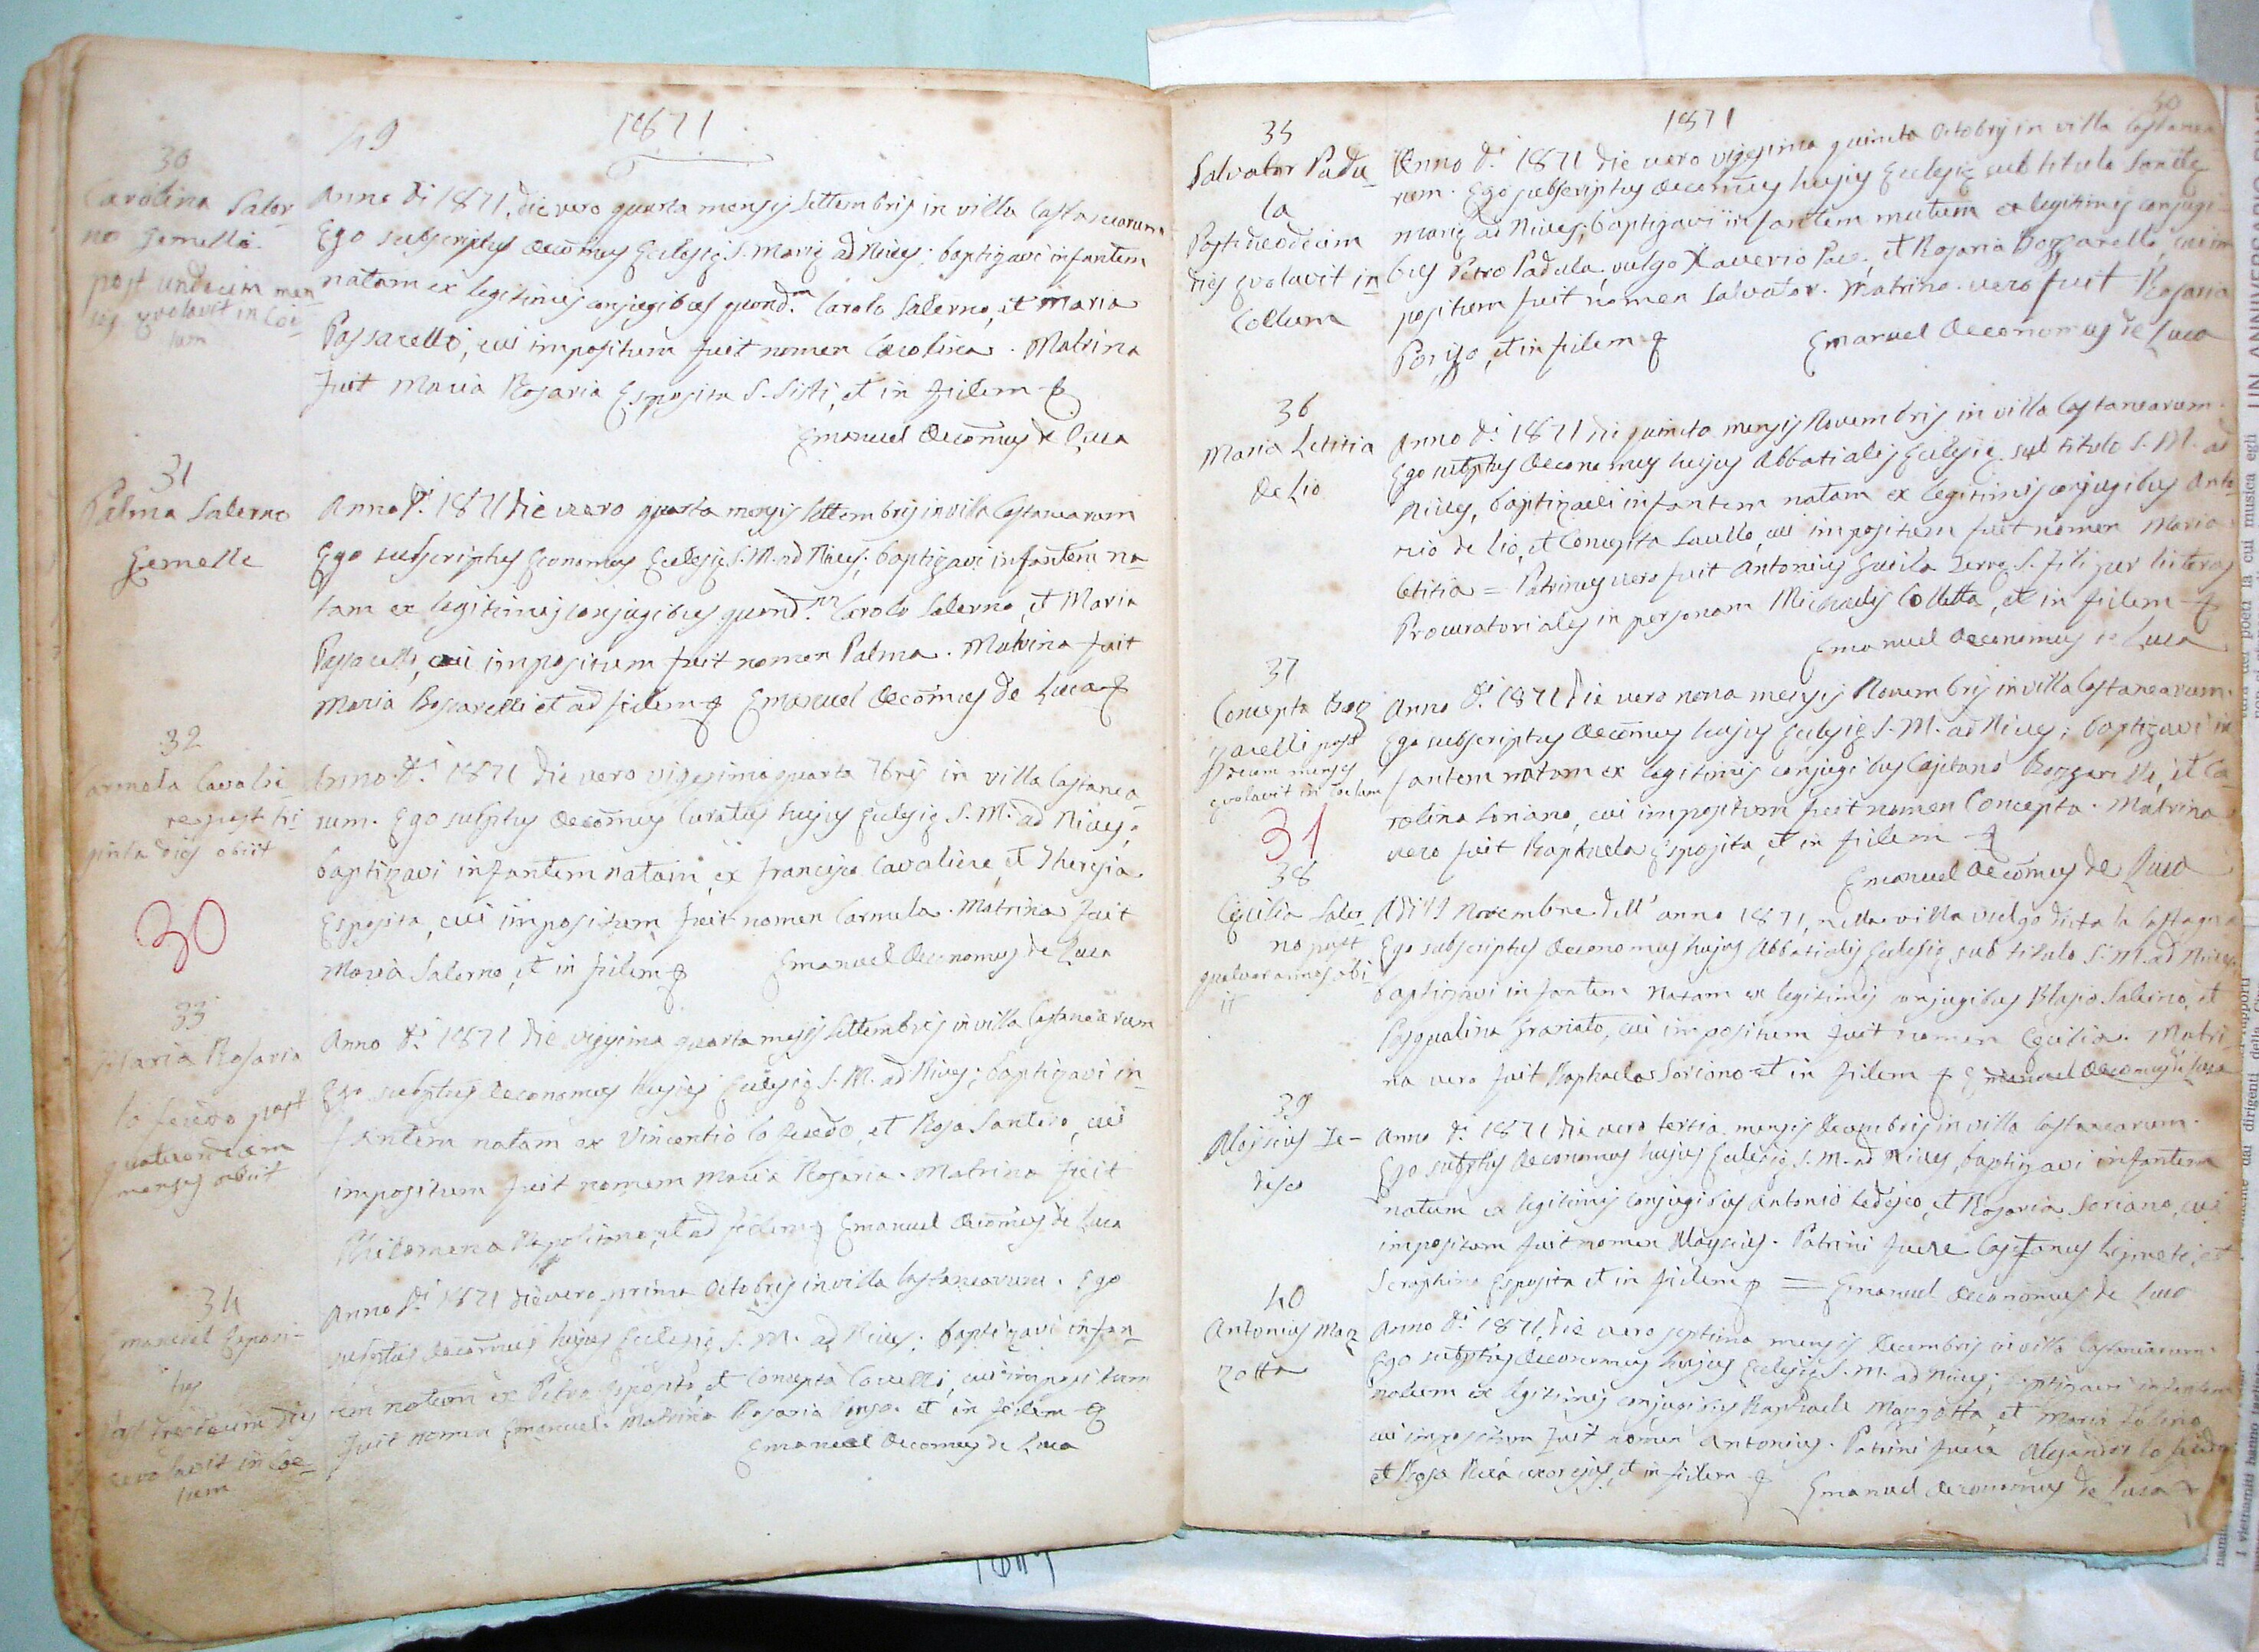 49
1871
30
Carolina Saler-
no Gemella.
post undecim men-
ses evolavit in Coe-
lum
Anno Di 1871, die vero quarta mensis Settembris in villa Castanearum
Ego subscriptus Oecomus Eclesię S. Marię ad Nives; baptizavi infantem
natam ex legitimis conjugibus quond.m Carolo Salerno, et Maria
Passarelli, cui impositum fuit nomen Carolina. Matrina
fuit Maria Rosaria Esposita S. Sisti, et in fidem
Emanuel Oecomus de Luca
31
Palma Salerno
Gemelle
Anno Di 1871 die vero quarta mensis Settembris in villa Castanearum
Ego subscriptus Economus Eclesię S. M. ad Nives; baptizavi infantem na-
tam ex legitimis conjugibus quond.m Carolo Salerno, et Maria
Passarelli, cui impositum fuit nomen Palma. Matrina fuit
Maria Boscarelli et ad fidem Emanuel Oecomus de Luca
32
armela Cavalie-
re post tri-
ginta dies obiit
30
Anno Di 1871 die vero vigesima quarta 7bris in villa Castanea-
rum. Ego subptus Oecomus Curatus hujus Eclesię S. M. ad Nives;
baptizavi infantem natam ex Francisco Cavaliere, et Theresia
Esposita, cui impositum fuit nomen Carmela. Matrina fuit
Maria Salerno, et in fidem Emanuel Oeconomus de Luca
33
Maria Rosaria
lo feudo post
quatuordecim
menses obiit
Anno Di 1871 die vigesima quarta mesis Settembris in villa Castanearum
Ego subptus Oeconomus hujus Eclesię S. M. ad Nives; baptizavi in-
fantem natam ex Vincentio lo feudo, et Rosa Santoro, cui
impositum fuit nomen Maria Rosaria. Matrina fuit
Philomena Napolitano, et ad fidem Emanuel Oecomus de Luca
34
manuel Esposi-
tus
post tredecim dies
evolavit in Coe-
lum
Anno Di 1871 die vero prima Octobris in villa Castanearum. Ego
subptus Oecomus hujus Eclesię S. M. ad Nives; baptizavi infan-
tem natum ex Petro Esposito, et Concepta, cui impositum
fuit nomen Emanuel. Matrina Rosaria et in fidem
Emanuel Oecomus de Luca
50
1871
35
Salvator Padu-
la
Post duodecim
dies evolavit in
Collum
Anno Di 1871 die vero vigesima quinta Octobris in villa Castanea
rum. Ego subscriptus Oecomus hujus Eclesię sub titulo Sanctę
Marię ad Nives; baptizavi infantem natum ex legitimis conjugi-
bus Petro Padula, vulgo Xaverio, et Rosaria Bozzarello, cui im
positum fuit nomen Salvator. Matrina vero fuit Rosaria
et in fidem Emanuel Oeconomus de Luca
36
Maria Letitia
de Lio
Anno Di 1871 die quinto mensis Novembris in villa Castanearum.
Ego subptus Oeconomus hujus Abbatialis Eclesię sub titulo S. M. ad
Nives, baptizavi infantem natam ex legitimis conjugibus Anto-
nio de Lio, et Concepta, cui impositum fuit nomen Maria
Letitia = Patrinus vero fuit Antonius per litteras
Procuratoriales in personam Michaelis Colletta, et in fidem
Emanuel Oeconomus de Luca
37
Concepta Boz
zarelli post
decem menses
evolavit in Coelum
31
Anno Di 1871 die vero nona mensis Novembris in villa Castanearum.
Ego subscriptus Oecomus hujus Eclesię S. M. ad Nives; baptizavi in
fantem natam ex legitimis conjugibus Cajetano Bozzarelli, et Ca-
rolina Soriano, cui impositum fuit nomen Concepta. Matrina
vero fuit Raphaela Esposita, et in fidem
Emanuel Oecomus de Luca
38
Cęcilia Saler-
no post
quatuor annos obi-
it
Novembre dell' anno 1871, nella villa vulgo dicta la Castagna
Ego subscriptus Oeconomus hujus Abbatialis Eclesię sub titulo S. M. ad Nives,
baptizavi infantem natam ex legitimis conjugibus Blasio Salerno, et
Pasqualina Graziato, cui impositum fuit nomen Cęcilia. Matri-
na vero fuit Raphaela Soriano et in fidem Emanuel Oecomus de Luca
39
Aloysius Te-
desco
Anno Di 1871 die vero tertia mensis Decembris in villa Castanearum.
Ego subptus Oeconomus hujus Eclesię S. M. ad Nives, baptizavi infantem
natum ex legitimis conjugibus Antonio Tedesco, et Rosaria Soriano, cui
impositum fuit nomen Aloysius. Patrini fuere Cajetanus et
Seraphina Esposita et in fidem = Emanuel Oeconomus de Luca
40
Antonius Maz
zotta
Anno Di 1871, die vero septima mensis Decembris in villa Castanearum.
Ego subptus Oeconomus hujus Eclesię S. M. ad Nives; baptizavi infantem
natum ex legitimis conjugibus Raphaele Mazzotta, et Maria
cui impositum fuit nomen Antonius. Patrini fuere lo feudo
et Rosa uxor ejus, et in fidem Emanuel Oeconomus de Luca